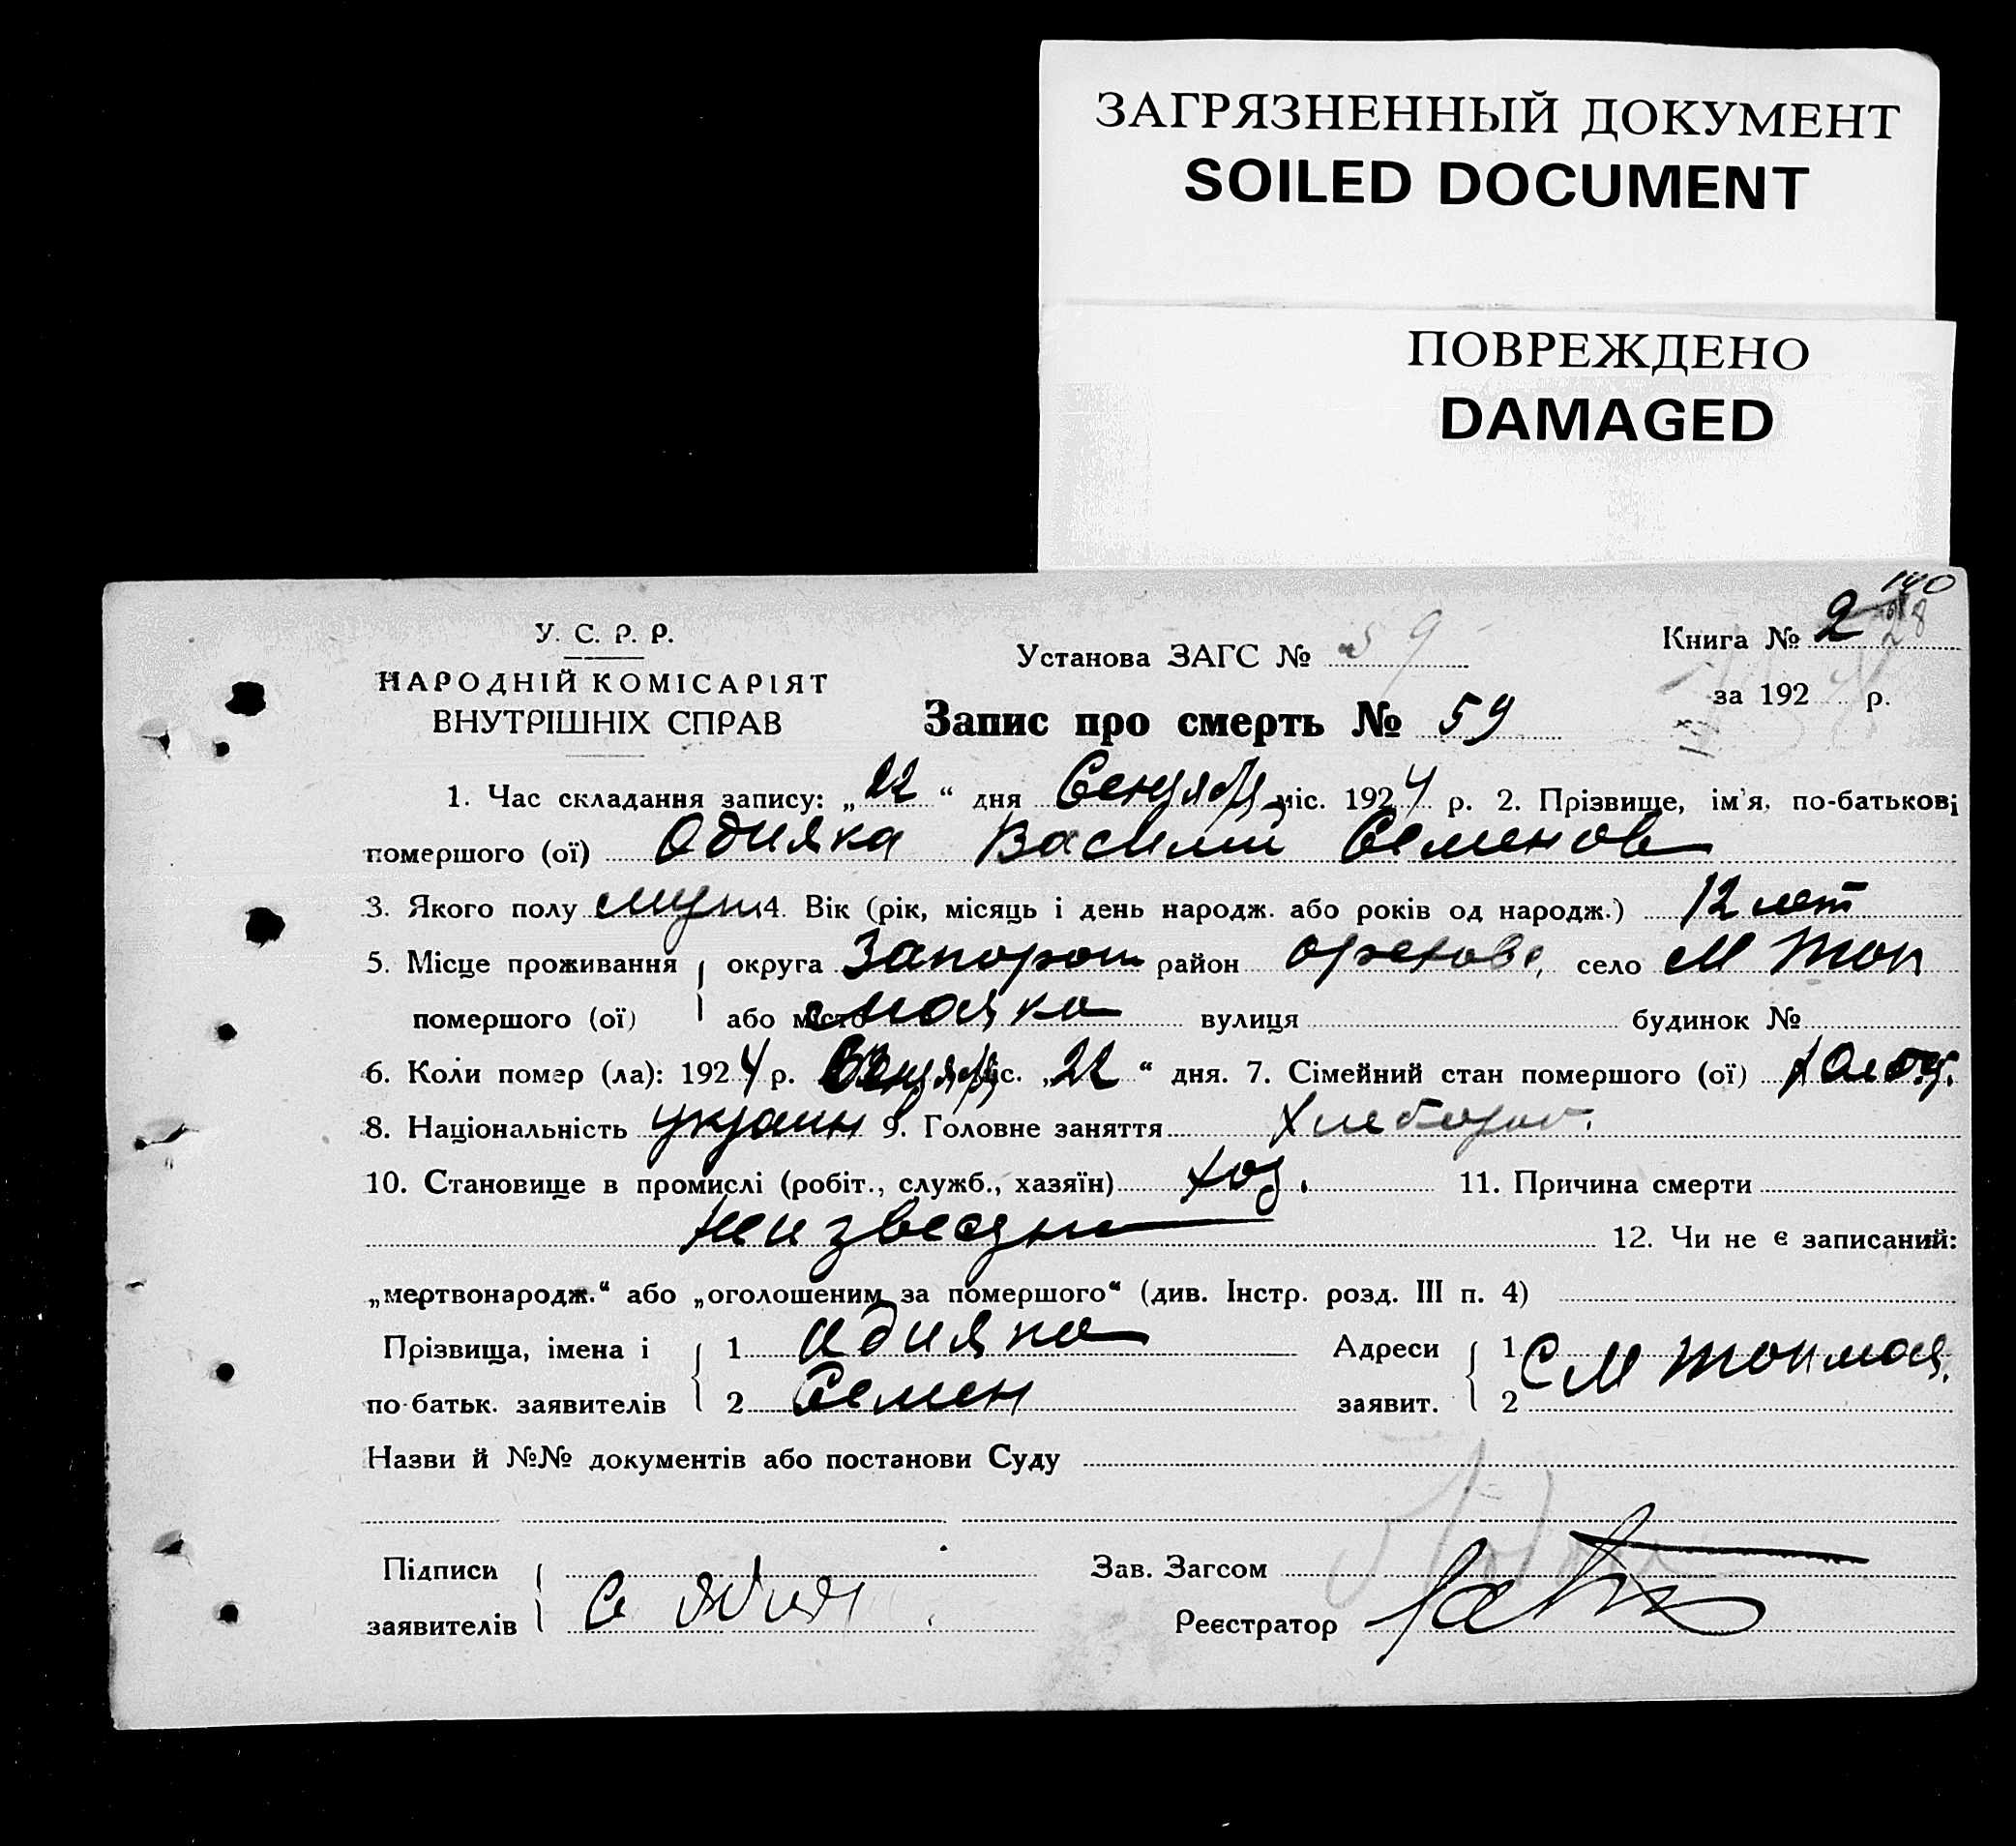 ЗАГРЯЗНЕННЫЙ ДОКУМЕНТ
SOILED DOCUMENT
ПОВРЕЖДЕНО
DAMAGED
140
У. С. Р. Р.
НАРОДНІЙ КОМІСАРІЯТ
ВНУТРІШНІХ СПРАВ
Установа ЗАГС № 59
Книга № 2
за 192 р.
Запис про смерть № 59
1. Час складання запису: „22“ дня міс. 1924 р. 2. Прізвище, ім'я, по-батькові
помершого (ої) Одияка Василий Семенов
3. Якого полу муж 4. Вік (рік, місяць і день народж. або років од народж.) 12 лет
5. Місце проживання округа Запорож район Орехов. село М Ток
помершого (ої) або місто мачка вулиця будинок №
6. Коли помер (ла): 1924 р. міс. „22“ дня. 7. Сімейний стан помершого (ої)
8. Національність украин 9. Головне заняття Хлебороб.
10. Становище в промислі (робіт., служб., хазяїн) хоз. 11. Причина смерти
12. Чи не є записаний:
„мертвонародж.“ або „оголошеним за помершого“ (див. Інстр. розд. III п. 4)
Прізвища, імена і 1 Одияка Адреси 1 С М Токмач.
по-батьк. заявителів 2 Семен заявит. 2
Назви й №№ документів або постанови Суду
Підписи
заявителів
Зав. Загсом
Реєстратор